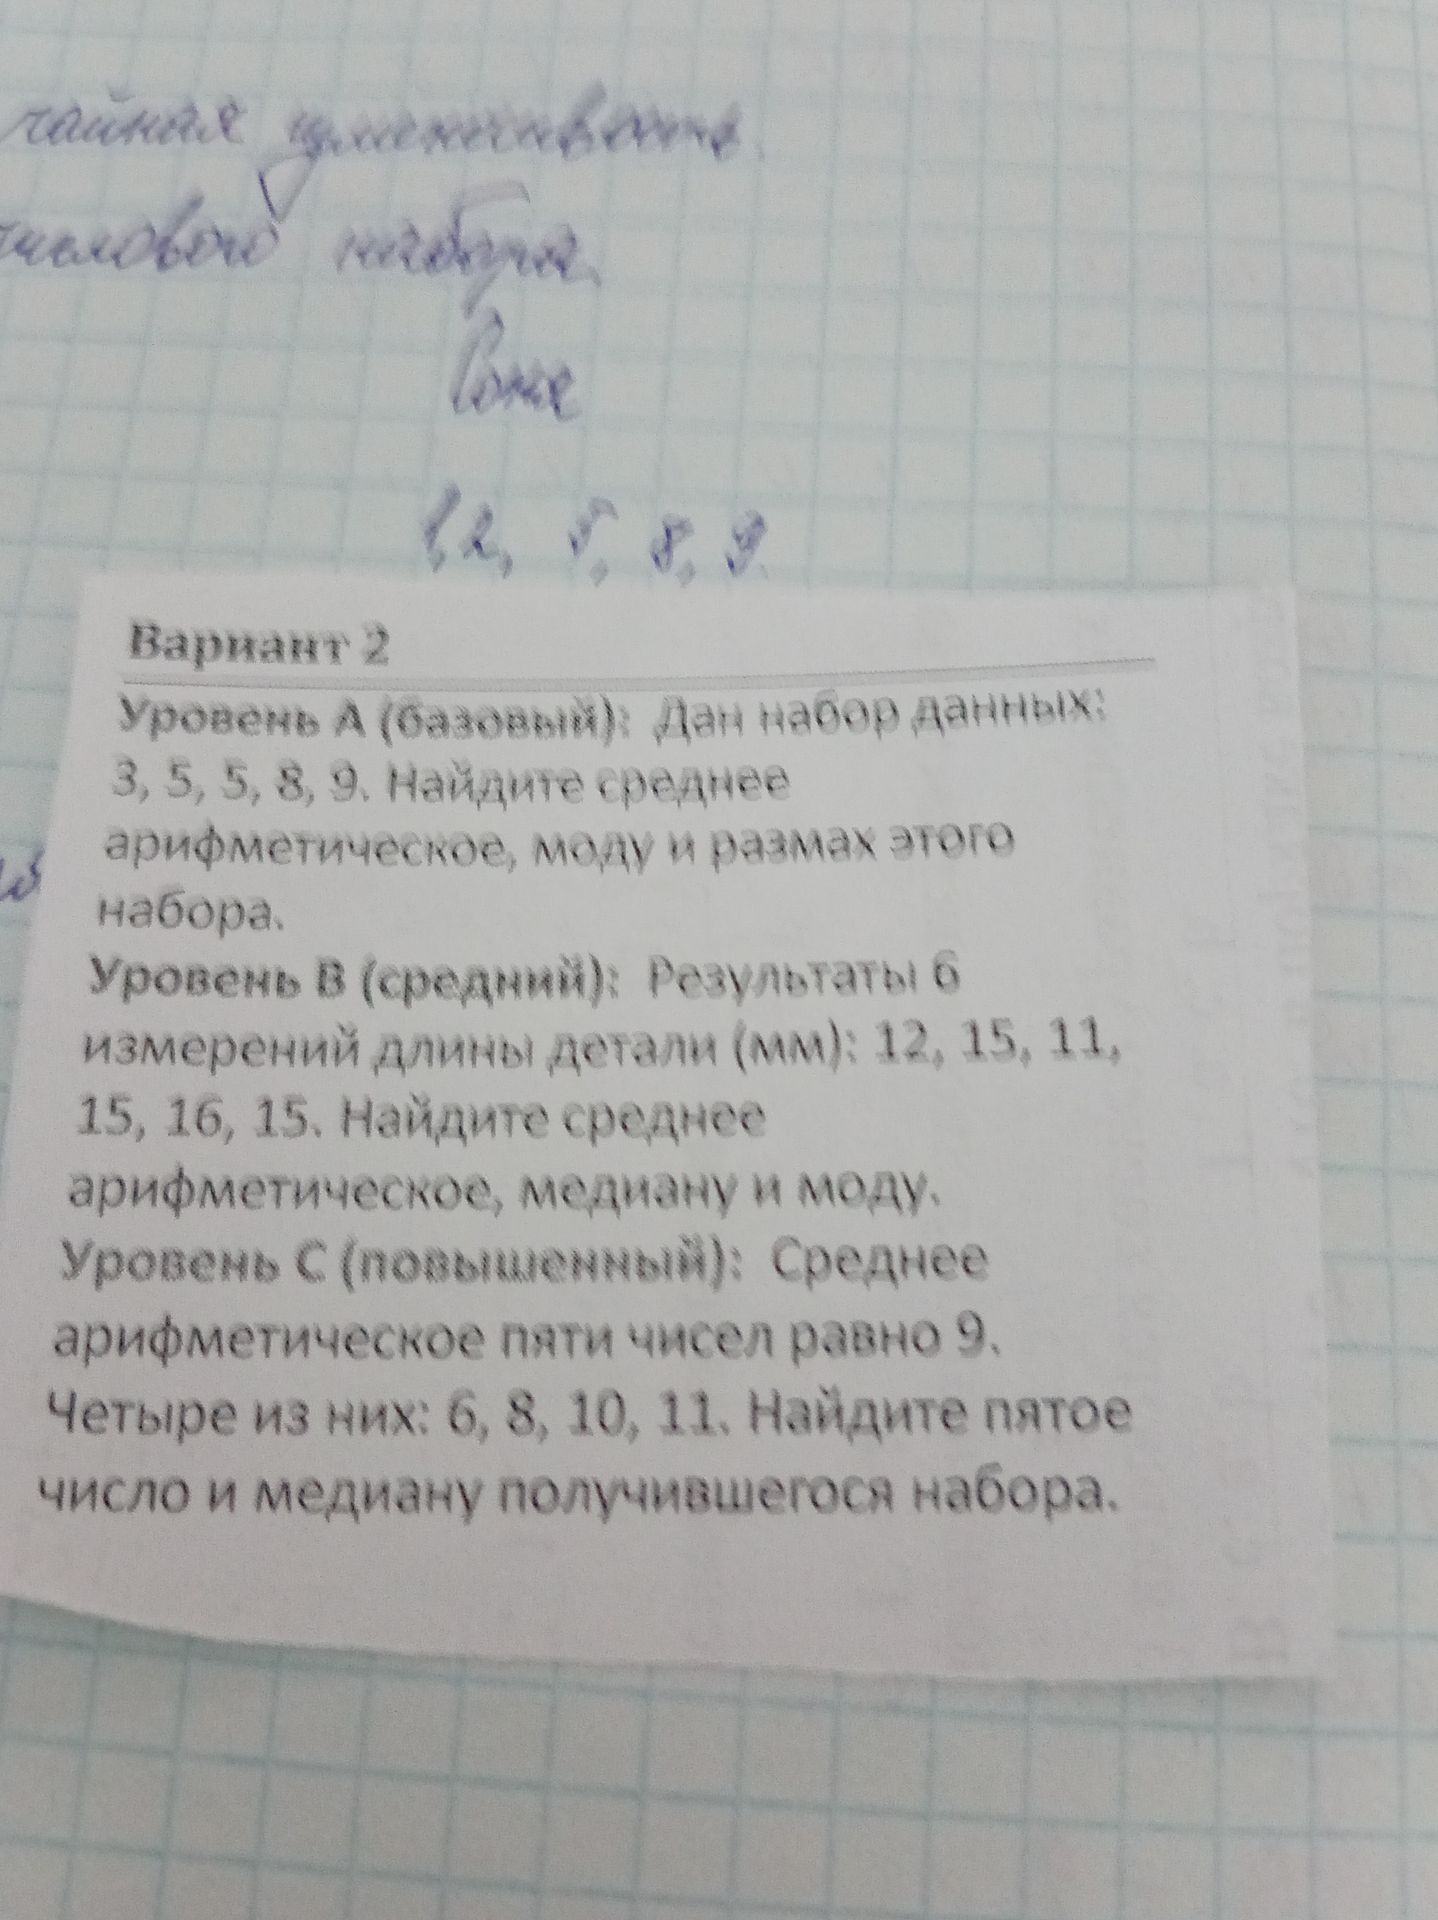 чайная изменчивость.
числового набора.
1,2, 5, 8, 9.
Вариант 2
Уровень А (базовый): Дан набор данных:
3, 5, 5, 8, 9. Найдите среднее
арифметическое, моду и размах этого
набора.
Уровень В (средний): Результаты 6
измерений длины детали (мм): 12, 15, 11,
15, 16, 15. Найдите среднее
арифметическое, медиану и моду.
Уровень С (повышенный): Среднее
арифметическое пяти чисел равно 9.
Четыре из них: 6, 8, 10, 11. Найдите пятое
число и медиану получившегося набора.